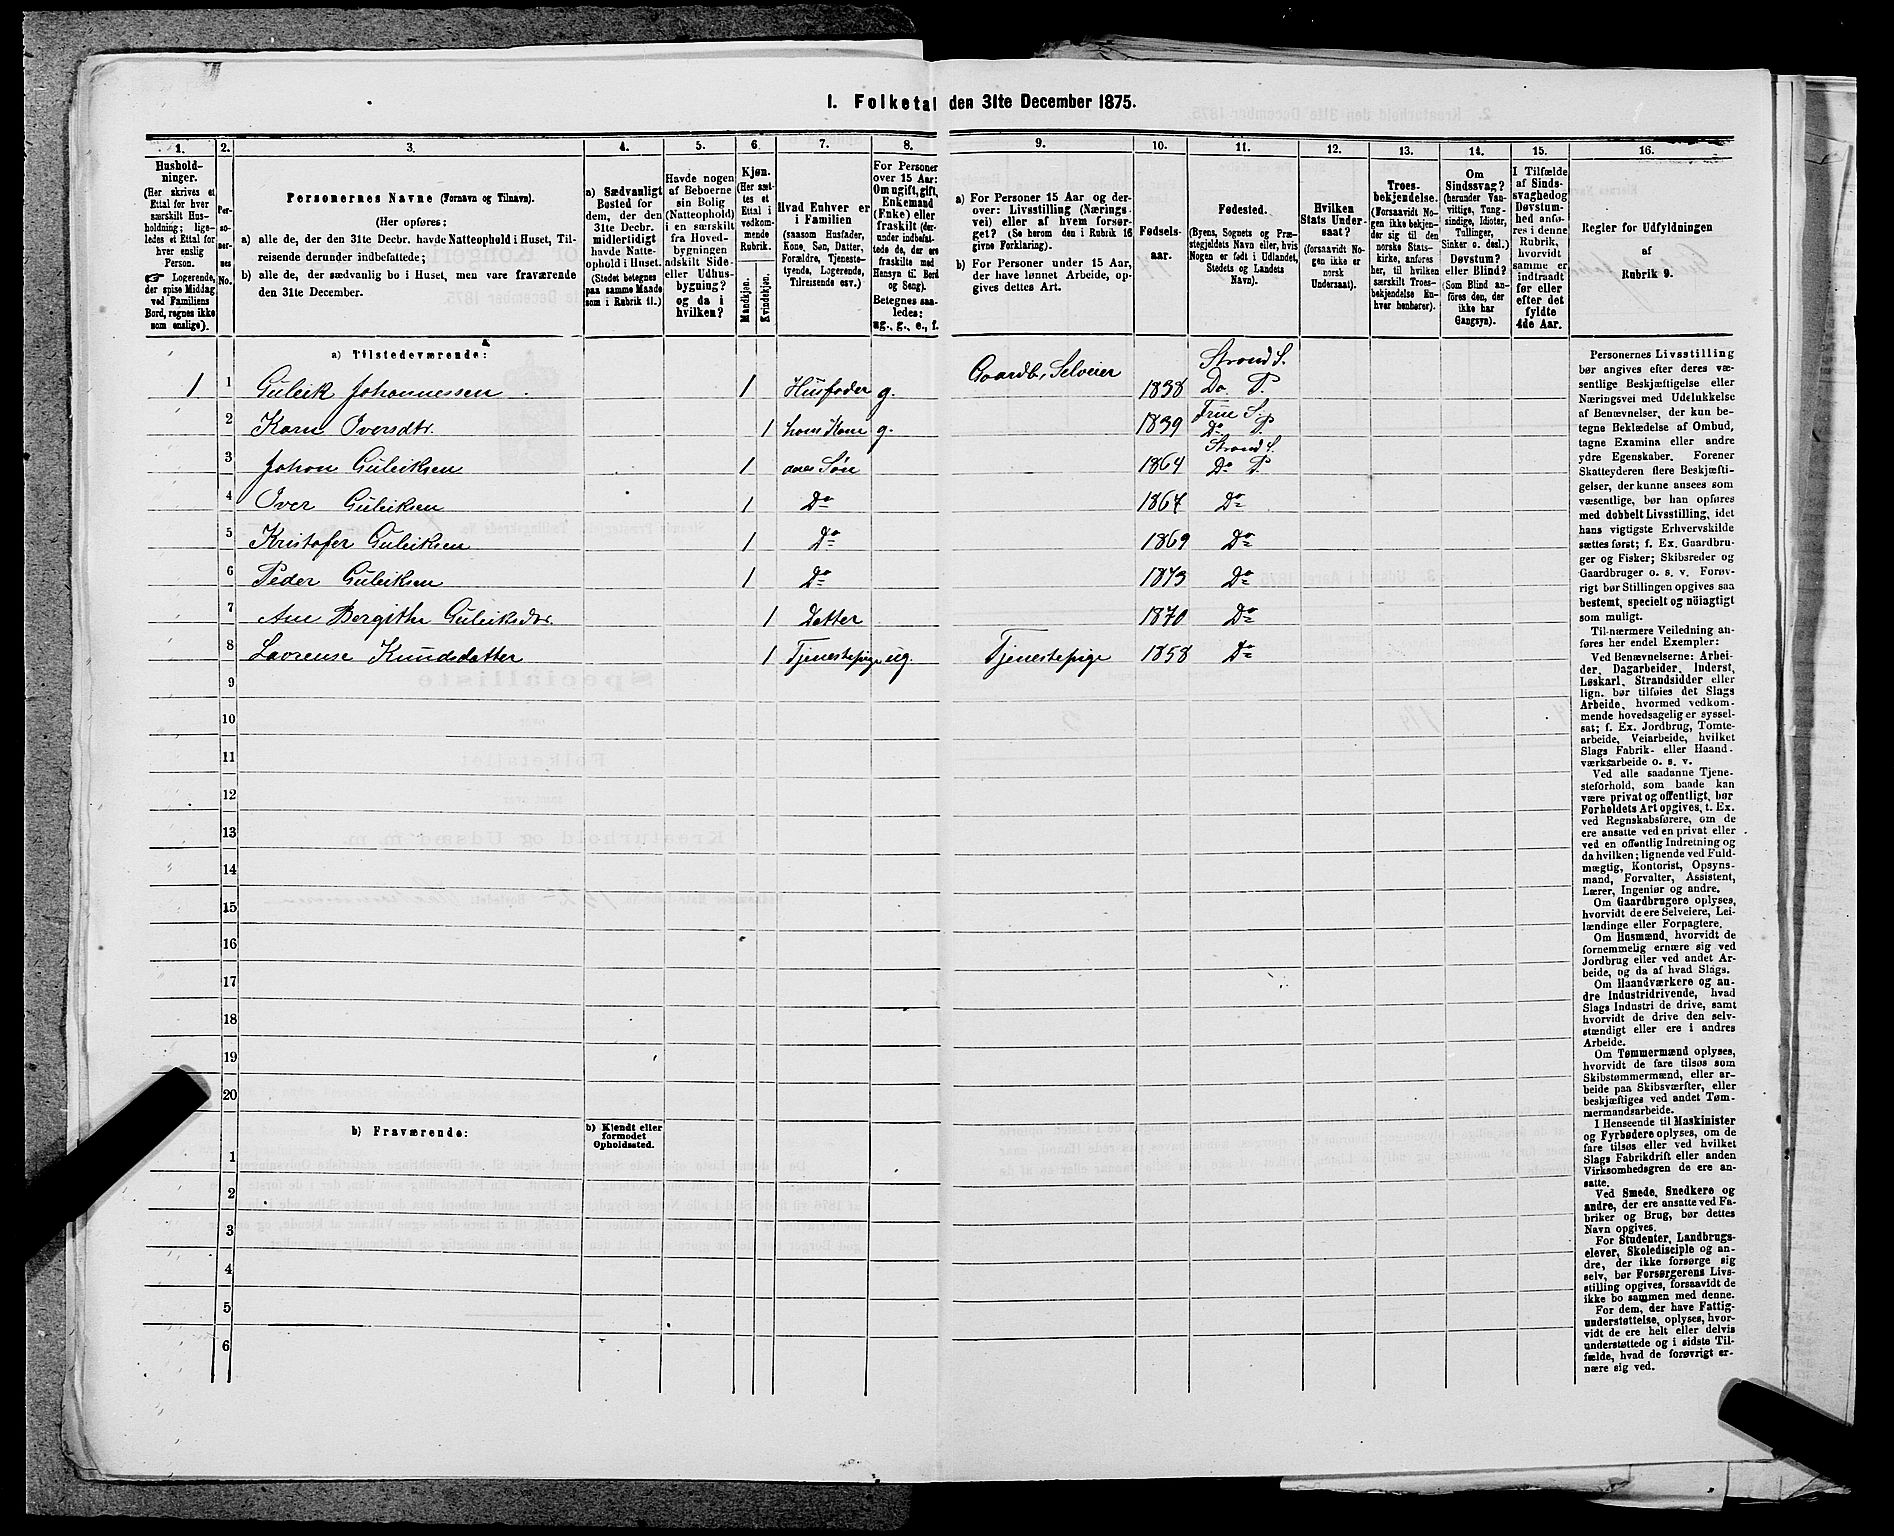 1. Folketal den 31te December 1875.
1. 2. 3. 4. 5. 6. 7. 8. 9. 10. 11. 12. 13. 14. 15. 16.
Husholdninger.
(Her skrives et
Ettal for hver
særskilt Husholdning;
ligeledes et Ettal for
hver enslig
Person.
☞ Logerende,
der spise Middag
ved Familiens
Bord, regnes ikke
som enslige).
Personernes No.
Personernes Navne (Fornavn og Tilnavn).
(Her opføres:
a) alle de, der den 31te Decbr. havde Natteophold i Huset, Til-
reisende derunder indbefattede;
b) alle de, der sædvanlig bo i Huset, men vare fraværende
den 31te December.
a) Sædvanligt
Bosted for
dem, der den
31te Decbr.
midlertidigt
havde Natte-
ophold i Huset.
(Stedet betegnes
paa samme Maade
som i Rubrik 11.)
Havde nogen
af Beboerne
sin Bolig
(Natteophold)
i en særskilt
fra Hoved-
bygningen
adskilt Side-
eller Udhus-
bygning?
og da i
hvilken?
Kjøn.
(Her sæt-
tes et
Ettal i
vedkom-
mende
Rubrik.
Mandkjøn.
Kvindekjøn.
Hvad Enhver er
i Familien
(saasom Husfader,
Kone, Søn, Datter,
Forældre, Tjeneste-
tyende, Logerende,
Tilreisende osv.)
For Personer
over 15 Aar:
Om ugift, gift,
Enkemand
(Enke) eller
fraskilt (der-
under indbefat-
tede de, der ere
fraskilte med
Hensyn til Bord
og Seng).
Betegnes saa-
ledes:
ug., g., e., f.
a) For Personer 15 Aar og der-
over: Livsstilling (Nærings-
vei) eller af hvem forsør-
get? (Se herom den i Rubrik 16
givne Forklaring).
b) For Personer under 15 Aar,
der have lønnet Arbeide, op-
gives dettes Art.
Fødsels-
aar.
Fødested.
(Byens, Sognets og Præ-
stegjeldets Navn eller, hvis
Nogen er født i Udlandet,
Stedets og Landets
Navn).
Hvilken
Stats Under-
saat?
(forsaavidt No-
gen ikke er
norsk
Undersaat).
Troes-
bekjendelse.
(Forsaavidt No-
gen ikke bekjen-
der sig til den
norske Stats-
kirke, anføres
her, til hvilken
særskilt Troes-
bekjendelse En-
hver henhører).
Om
Sindssvag?
(herunder Van-
vittige, Tung-
sindige, Idioter,
Tullinger,
Sinker o. desl.)
Døvstum?
eller Blind?
(Som Blind an-
føres den, der
ikke har
Gangsyn).
I Tilfælde
af Sinds-
svaghed og
Døvstum-
hed anfø-
res i denne
Rubrik,
hvorvidt
samme er
indtraadt
før eller
efter det
fyldte
4de Aar.
Regler for Udfyldningen
af
Rubrik 9.
a) Tilstedeværende:
1 1 Guleik Johannessen 1 Husfader g. Gaardb., Selveier 1838 Strand S. Do P.
2 Karn Oversdtr. 1 hans Kone g. 1839 True S. Do P.
3 Johan Guleiksen 1 Søn 1864 Strand S. Do P.
4 Over Guleiksen 1 Do 1867 Do
5 Kristofer Guleiksen 1 Do 1869 Do
6 Peder Guleiksen 1 Do 1873 Do
7 Ane Bergithe Guleiksdtr. 1 Datter 1870 Do
8 Lavrense Knudsdatter 1 Tjenestepige ug. Tjenestepige 1858 Do
9
10
11
12
13
14
15
16
17
18
19
20
b) Fraværende:
b) Kjendt eller
formodet
Opholdssted.
1
2
3
4
5
6
Personernes Livsstilling
bør angives efter deres væ-
sentlige Beskjæftigelse eller
Næringsvei med Udelukkelse
af Benævnelser, der kun be-
tegne Beklædelse af Ombud,
tagne Examina eller andre
ydre Egenskaber. Forener
Skatteyderen flere Beskjæfti-
gelser, der kunne ansees som
væsentlige, bør han opføres
med dobbelt Livsstilling, idet
hans vigtigste Erhvervskilde
sættes først; f. Ex. Gaardbru-
ger og Fisker; Skibsreder og
Gaardbruger o. s. v. Forøv-
rigt bør Stillingen opgives saa
bestemt, specielt og nøiagtigt
som muligt.
Til nærmere Veiledning an-
føres her endel Exempler:
Ved Benævnelserne: Arbei-
der, Dagarbeider, Inderst,
Løskarl, Strandsidder eller
lign. bør tilføies det Slags
Arbeide, hvormed vedkom-
mende hovedsagelig er syssel-
sat; f. Ex. Jordbrug, Tomte-
arbeide, Veiarbeide, hvilket
Slags Fabrik- eller Haand-
værksarbeide o. s. v.
Ved alle saadanne Tjene-
steforhold, som baade kan
være privat og offentligt, bør
Forholdets Art opgives, t. Ex.
ved Regnskabsførere, om de
ere ansatte ved en privat eller
ved en offentlig Indretning og
da hvilken; lignende ved Fuld-
mægtig, Kontorist, Opsyns-
mand, Forvalter, Assistent,
Lærer, Ingeniør og andre.
Om Gaardbrugere oplyses,
hvorvidt de ere Selveiere, Lei-
lændinge eller Forpagtere.
Om Husmænd, hvorvidt de
fornemmelig ernære sig ved
Jordbrug eller ved andet Ar-
beide, og da af hvad Slags.
Om Haandværkere og an-
dre Industridrivende, hvad
Slags Industri de drive, samt
hvorvidt de drive den selv-
stændigt eller ere i andres
Arbeide.
Om Tømmermænd oplyses,
hvorvidt de fare tilsøs som
Skibstømmermænd, eller ar-
beide paa Skibsværfter, eller
beskjæftiges ved andet Tøm-
mermandsarbeide.
I Henseende til Maskinister
og Fyrbødere oplyses, om de
fare tilsøs eller ved hvilket
Slags Fabrikdrift eller anden
Virksomhedsgren de ere an-
satte.
Ved Smede, Snedkere og
andre, der ere ansatte ved Fa-
briker og Brug, bør dettes
Navn opgives.
For Studenter, Landbrugs-
elever, Skoledisciple og an-
dre, der ikke forsørge sig
selv, bør Forsørgerens Livs-
stilling opgives, forsaavidt de
ikke bo sammen med denne.
For dem, der have Fattig-
understøttelse, oplyses, hvor-
vidt de ere helt eller delvis
understøttede og i sidste Til-
fælde, hvad de forøvrigt er-
nære sig ved.